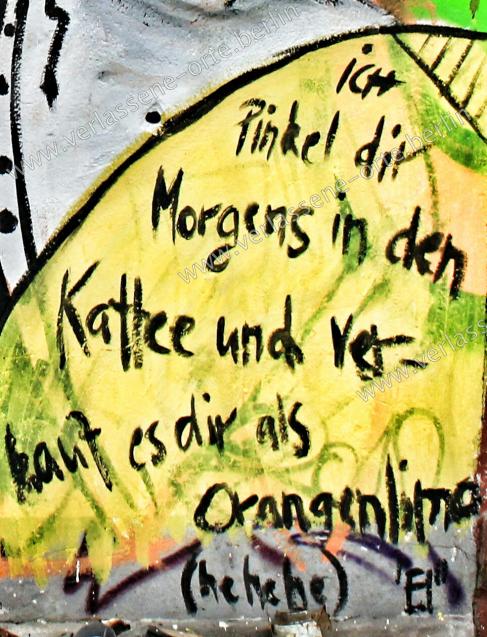 ich
Pinkel dir
Morgens in den
Kaffee und ver-
kauf es dir als
Orangenlimo
(hehehe) "El"
www.verlassene-orte.berlin
www.verlassene-orte.berlin
www.verlassene-orte.berlin